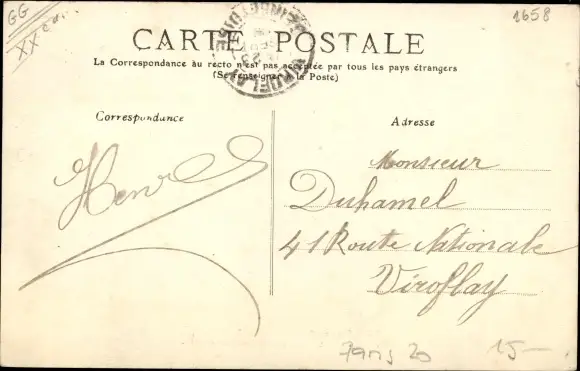 GG
XX em.
1658
CARTE POSTALE
La Correspondance au recto n'est pas acceptée par tous les pays étrangers
(Se renseigner à la Poste)
Correspondance
Henri
Adresse
Monsieur
Duhamel
41 Route Nationale
Viroflay
Paris 20
15—